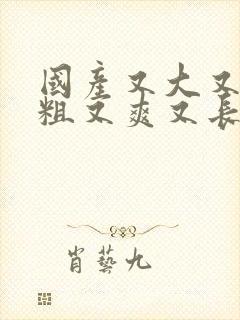 國產又大又
粗又爽又長
肖藝九